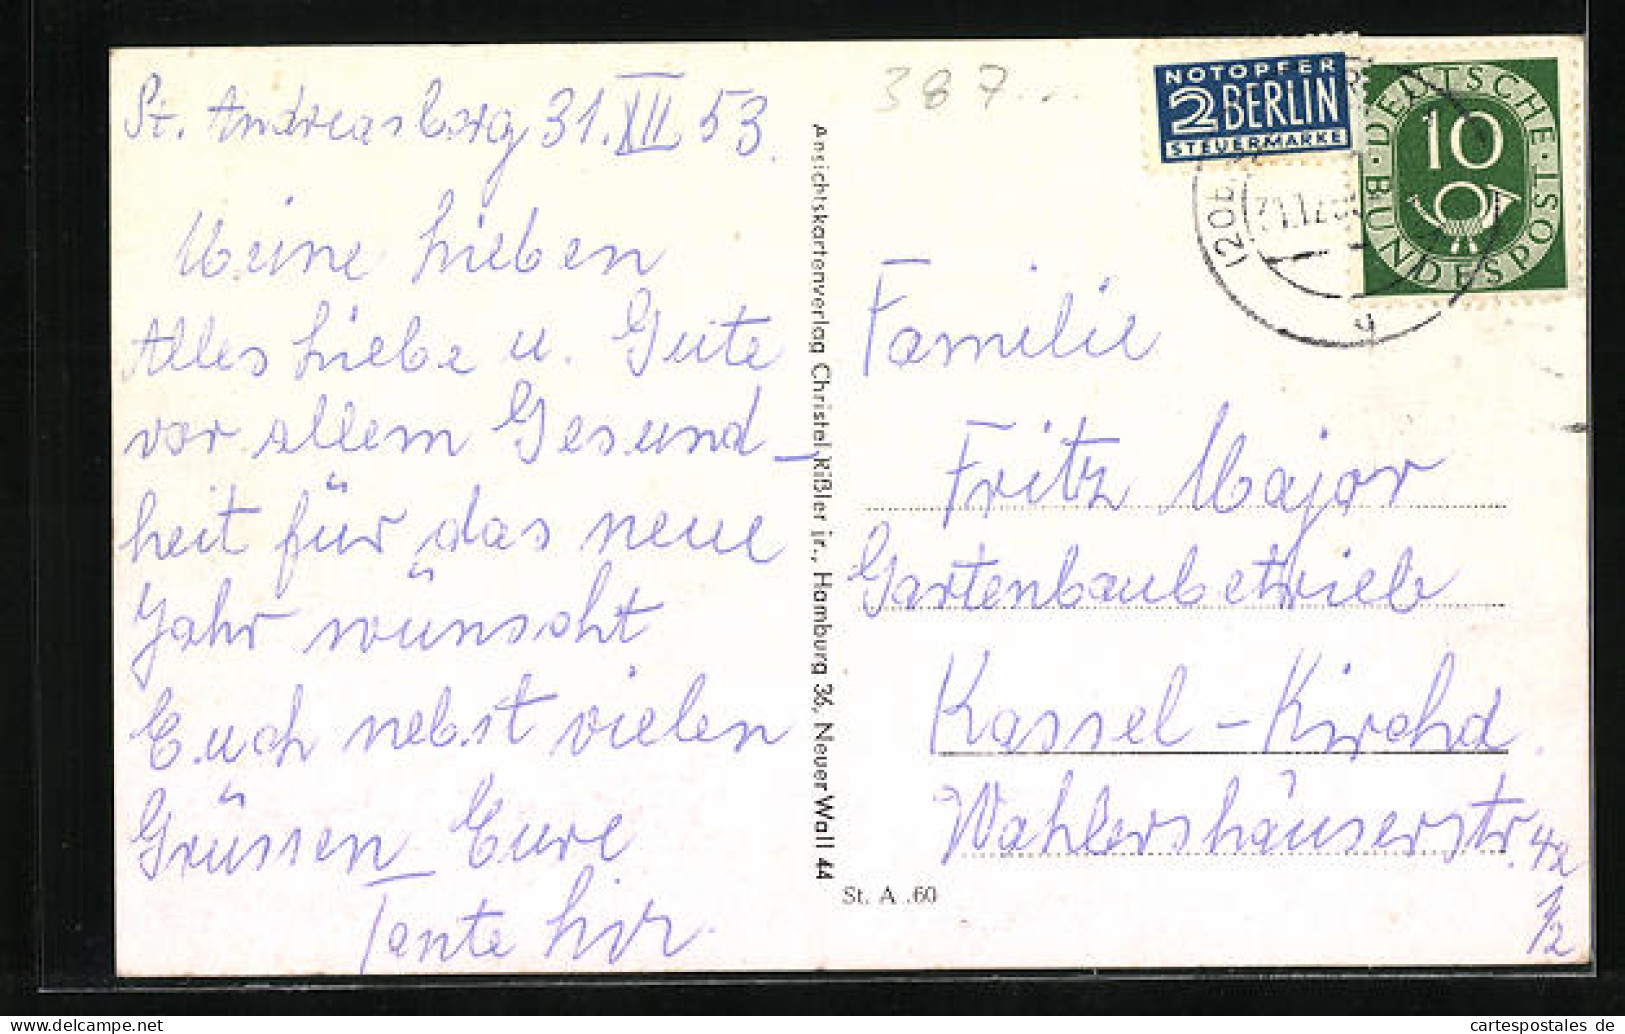 St. Andreasberg 31. XII 53.
Meine Lieben
Alles Liebe u. Gute
vor allem Gesund-
heit für das neue
Jahr wünscht
Euch nebst vielen
Grüssen Eure
Tante
Ansichtskartenverlag Christel Kißler jr., Hamburg 36, Neuer Wall 44
387...
NOTOPFER
2 BERLIN
STEUERMARKE
DEUTSCHE · BUNDESPOST
10
(20b)
31.12.53
Familie
Fritz Major
Gartenbaubetrieb
Kassel-Kirchd.
Wahlershäuserstr. 42
1/2
St. A .60
www.cartespostales.eu
cartespostales de